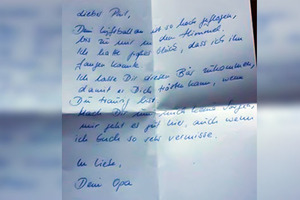 Lieber Paul,
Dein Luftballon ist so hoch geflogen,
bis zu mir in den Himmel.
Ich hatte großes Glück, dass ich ihn
fangen konnte.
Ich habe Dir diesen Bär
damit er Dich trösten kann, wenn
Du traurig bist.
Mach Dir um mich keine Sorgen,
mir geht es gut hier, auch wenn
ich Euch so sehr vermisse.
In Liebe,
Dein Opa